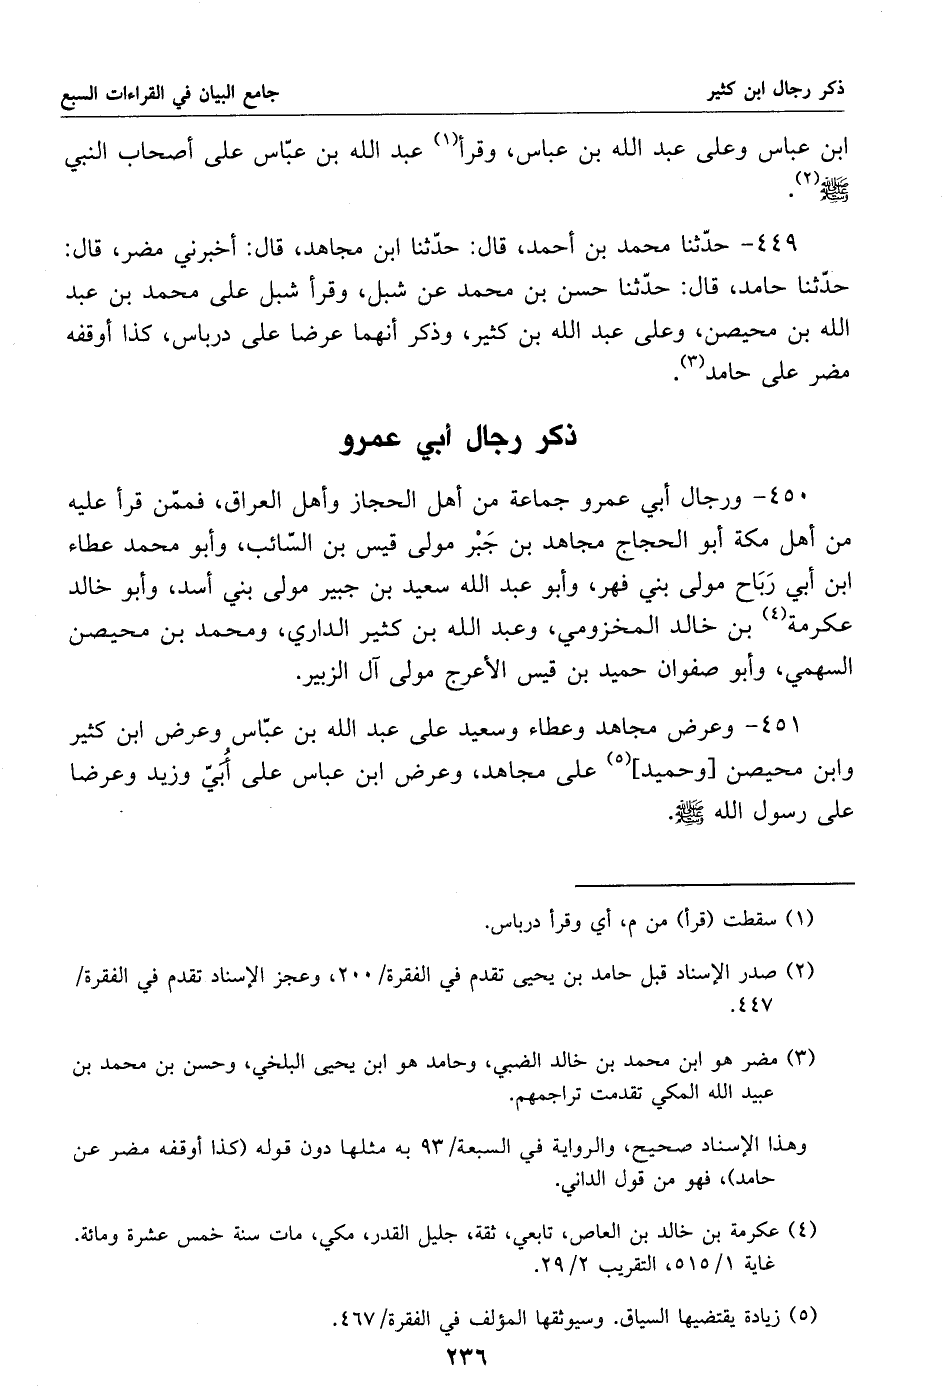 ذكر رجال ابن كثير
جامع البيان في القراءات السبع
ابن عباس وعلى عبد الله بن عباس، وقرأ(١) عبد الله بن عبّاس على أصحاب النبي
ﷺ(٢).
٤٤٩- حدّثنا محمد بن أحمد، قال: حدّثنا ابن مجاهد، قال: أخبرني مضر، قال:
حدّثنا حامد، قال: حدّثنا حسن بن محمد عن شبل، وقرأ شبل على محمد بن عبد
الله بن محيصن، وعلى عبد الله بن كثير، وذكر أنهما عرضا على درباس، كذا أوقفه
مضر على حامد(٣).
ذكر رجال أبي عمرو
٤٥٠- ورجال أبي عمرو جماعة من أهل الحجاز وأهل العراق، فممّن قرأ عليه
من أهل مكة أبو الحجاج مجاهد بن جَبْر مولى قيس بن السّائب، وأبو محمد عطاء
ابن أبي رَبَاح مولى بني فهر، وأبو عبد الله سعيد بن جبير مولى بني أسد، وأبو خالد
عكرمة(٤) بن خالد المخزومي، وعبد الله بن كثير الداري، ومحمد بن محيصن
السهمي، وأبو صفوان حميد بن قيس الأعرج مولى آل الزبير.
٤٥١- وعرض مجاهد وعطاء وسعيد على عبد الله بن عبّاس وعرض ابن كثير
وابن محيصن [وحميد](٥) على مجاهد، وعرض ابن عباس على أُبَيّ وزيد وعرضا
على رسول الله ﷺ.
(١) سقطت (قرأ) من م، أي وقرأ درباس.
(٢) صدر الإسناد قبل حامد بن يحيى تقدم في الفقرة/ ٢٠٠، وعجز الإسناد تقدم في الفقرة/
٤٤٧.
(٣) مضر هو ابن محمد بن خالد الضبي، وحامد هو ابن يحيى البلخي، وحسن بن محمد بن
عبيد الله المكي تقدمت تراجمهم.
وهذا الإسناد صحيح، والرواية في السبعة/ ٩٣ به مثلها دون قوله (كذا أوقفه مضر عن
حامد)، فهو من قول الداني.
(٤) عكرمة بن خالد بن العاص، تابعي، ثقة، جليل القدر، مكي، مات سنة خمس عشرة ومائة.
غاية ١/ ٥١٥، التقريب ٢/ ٢٩.
(٥) زيادة يقتضيها السياق. وسيوثقها المؤلف في الفقرة/ ٤٦٧.
٢٣٦